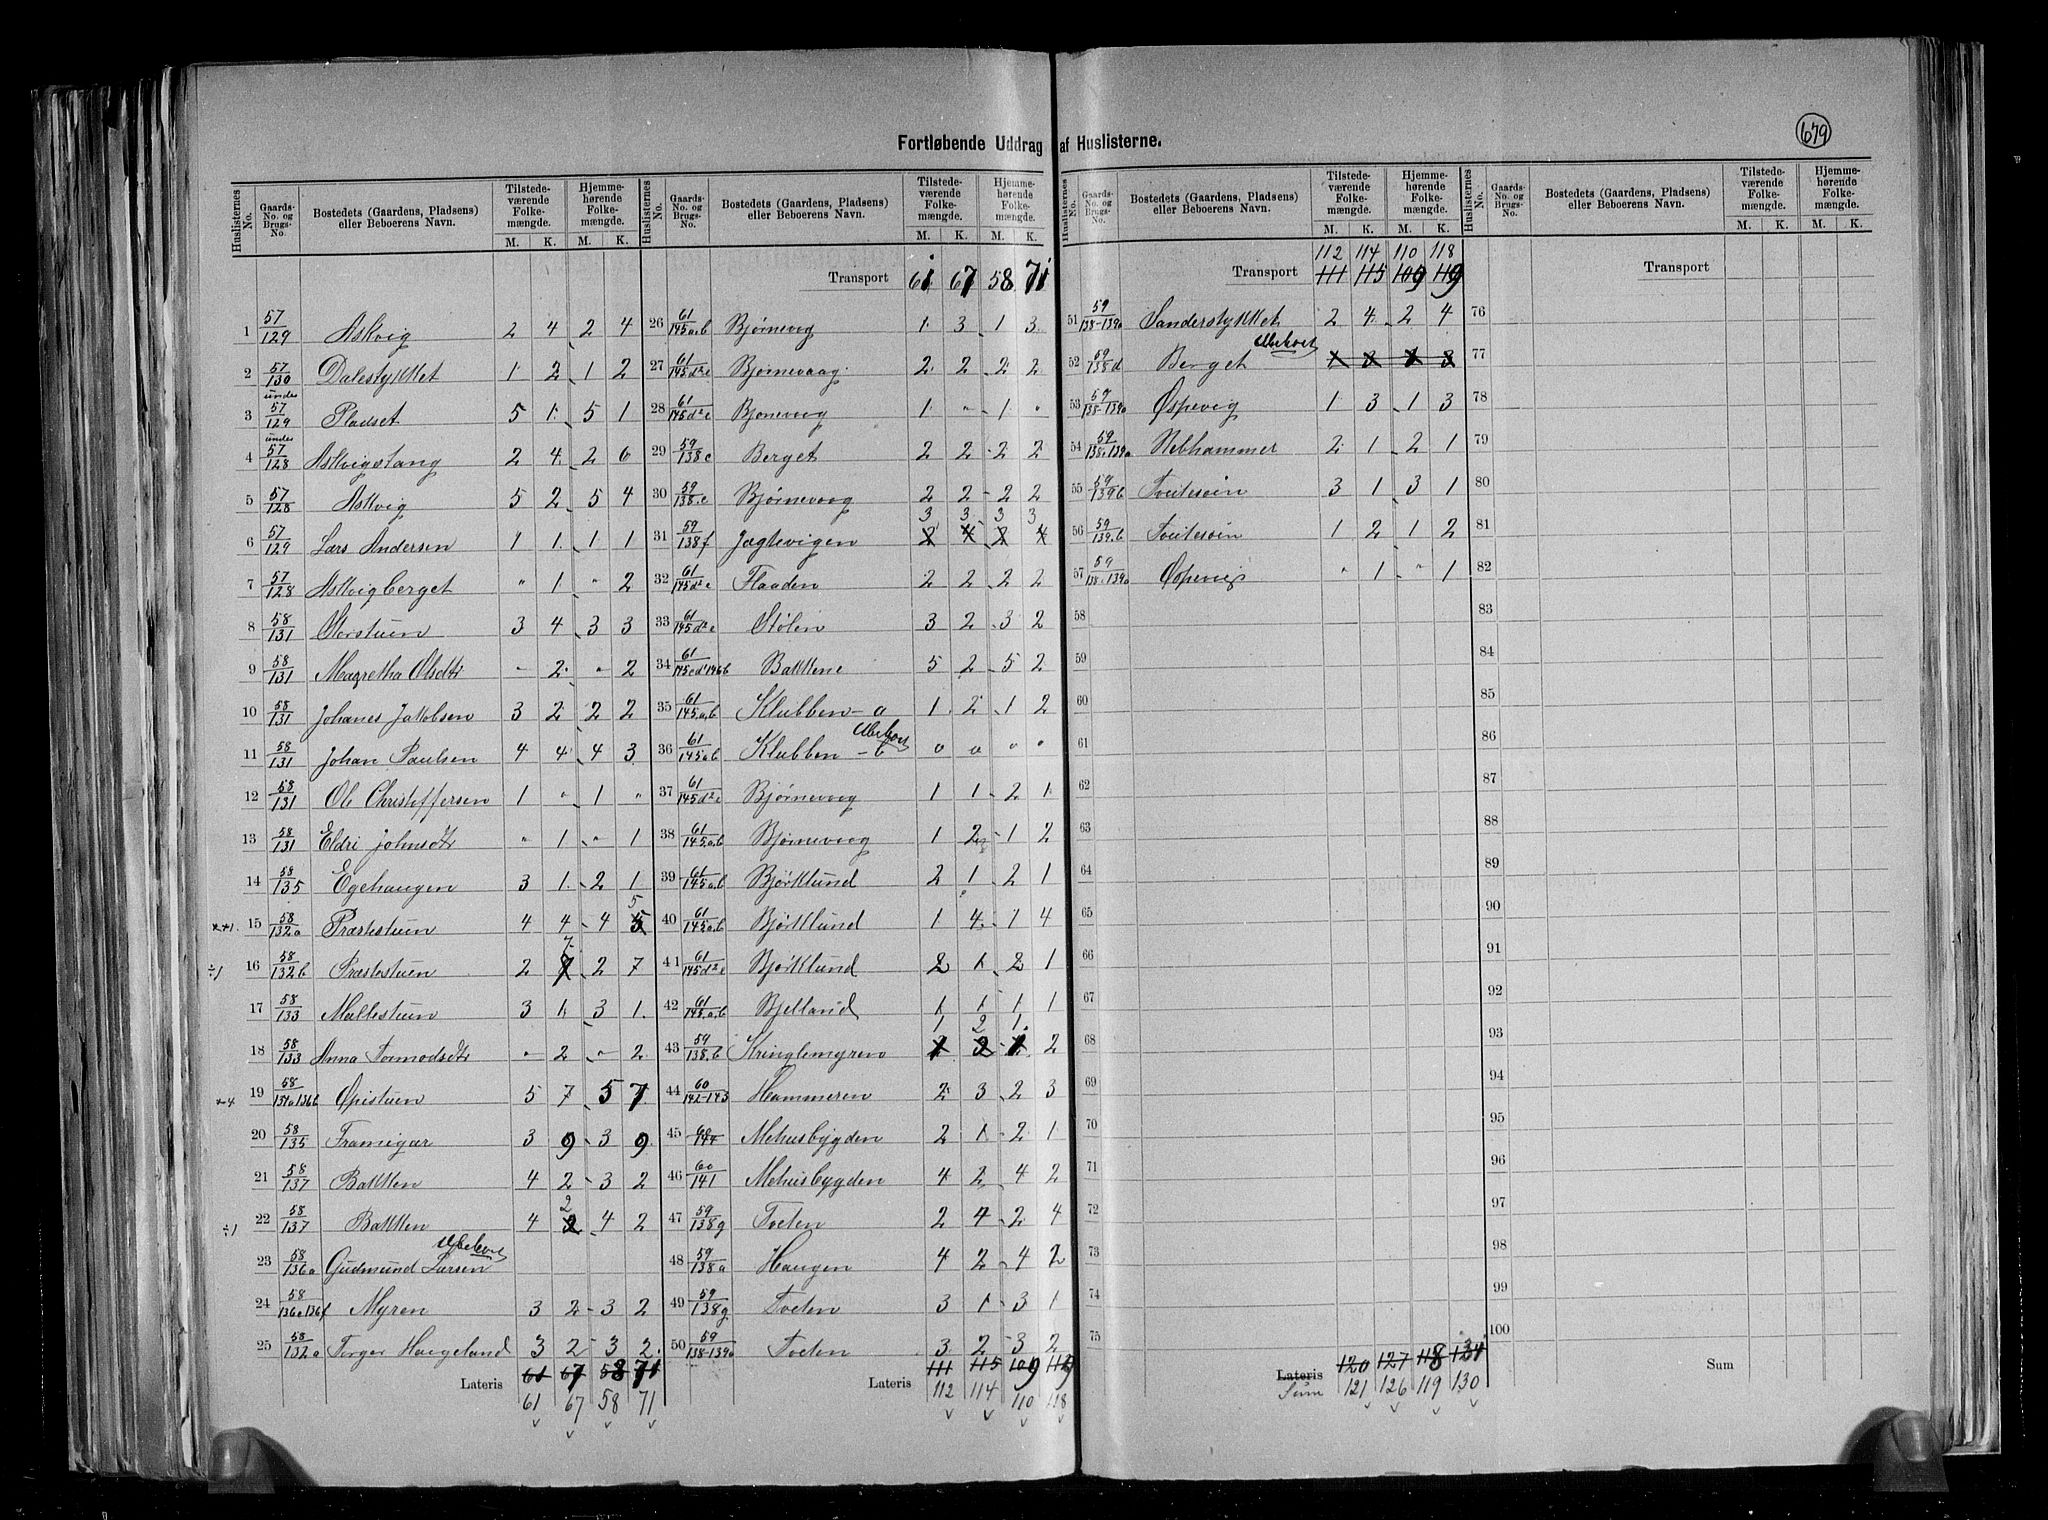 679
Fortløbende Uddrag af Huslisterne.
Huslisternes No. | Gaards-No. og Brugs-No. | Bostedets (Gaardens, Pladsens) eller Beboerens Navn. | Tilstedeværende Folkemængde. M. K. | Hjemmehørende Folkemængde. M. K.
1 57/129 Askvig 2 4 2 4
2 57/130 Dalestykket 1 2 1 2
3 under 57/129 Pladset 5 1 5 1
4 under 57/128 Askvigstang 2 4 2 6
5 57/128 Askvig 5 2 5 4
6 57/129 Lars Andersen 1 1 1 1
7 57/128 Askvigberget " 1 " 2
8 58/131 Storstuen 3 4 3 3
9 58/131 Magretha Olsdtr - 2 " 2
10 58/131 Johanes Jakobsen 3 2 2 2
11 58/131 Johan Paulsen 4 4 4 3
12 58/131 Ole Christoffersen 1 " 1 "
13 58/131 Eldri Johnsdtr " 1 " 1
14 58/135 Egehaugen 3 1 2 1
15 58/132a Præstestuen 4 4 4 5
÷1 16 58/132b Præstestuen 2 7 2 7
17 58/133 Mallestuen 3 1 3 1
18 58/133 Anna Tormodsdtr " 2 " 2
19 58/134a136b Opistuen 5 7 5 7
20 58/135 Framigar 3 9 3 9
21 58/137 Bakken 4 2 3 2
÷1 22 58/137 Bakken 4 2 4 2
23 58/136a Gudmund Larsen Ubeboet
24 58/136e136f Myren 3 2 3 2
25 58/132a Torger Haugeland 3 2 3 2
Lateris 61 67 58 71
61 67 58 71
Huslisternes No. | Gaards-No. og Brugs-No. | Bostedets (Gaardens, Pladsens) eller Beboerens Navn. | Tilstedeværende Folkemængde. M. K. | Hjemmehørende Folkemængde. M. K.
Transport 61 67 58 71
26 61/145a.b Bjørnevog 1 3 1 3
27 61/145d²e Bjørnevaag 2 2 2 2
28 61/145d²e Bjønevog 1 " 1 "
29 59/138c Berget 2 2 2 2
30 59/138e Bjørnevog 2 2 2 2
31 59/138f Jægtevigen 3 3 3 3
32 61/145d²e Flaaden 2 2 2 2
33 61/145d²e Stølen 3 2 3 2
34 61/145cd¹146b Bakkene 5 2 5 2
35 61/145a.b Klubben - a 1 2 1 2
36 61/145a.b Klubben - b Ubeboet o o o o
37 61/145d²e Bjørnevog 1 1 2 1
38 61/145a.b Bjørnevog 1 2 1 2
39 61/145a.b Bjørklund 2 1 2 1
40 61/145a.b Bjørklund 1 4 1 4
41 61/145d²e Bjørklund 2 1 2 1
42 61/145a.b Bjelland 1 1 1 1
43 59/138.b Kringlemyren 1 2 1 2
44 60/142-143 Hammeren 2 3 2 3
45 60/144 Mehusbygden 2 1 2 1
46 60/141 Mehusbygden 4 2 4 2
47 59/138g Tveten 2 4 2 4
48 59/138a Haugen 4 2 4 2
49 59/138g Tveten 3 1 3 1
50 59/138-139a Tveten 3 2 3 2
Lateris 111 115 109 119
112 114 110 118
Huslisternes No. | Gaards-No. og Brugs-No. | Bostedets (Gaardens, Pladsens) eller Beboerens Navn. | Tilstedeværende Folkemængde. M. K. | Hjemmehørende Folkemængde. M. K.
112 114 110 118
Transport 111 115 109 119
51 59/138-139a Sanderstykket 2 4 2 4
52 59/138d Berget Ubeboet 1 3 1 3
53 59/138-139a Øspevig 1 3 1 3
54 59/138.139a Nebhammer 2 1 2 1
55 59/139b Tveitesvin 3 1 3 1
56 59/139.b Tveitesvin 1 2 1 2
57 59/138.139a Øspevig " 1 " 1
58
59
60
61
62
63
64
65
66
67
68
69
70
71
72
73
74
75
Lateris 120 127 118 131
Sum 121 126 119 130
Huslisternes No. | Gaards-No. og Brugs-No. | Bostedets (Gaardens, Pladsens) eller Beboerens Navn. | Tilstedeværende Folkemængde. M. K. | Hjemmehørende Folkemængde. M. K.
Transport
76
77
78
79
80
81
82
83
84
85
86
87
88
89
90
91
92
93
94
95
96
97
98
99
100
Sum